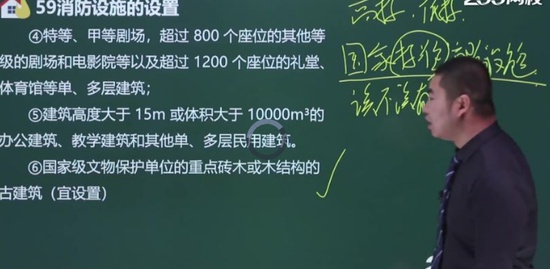 59消防设施的设置
④特等、甲等剧场，超过 800 个座位的其他等
级的剧场和电影院等以及超过 1200 个座位的礼堂、
体育馆等单、多层建筑；
⑤建筑高度大于 15m 或体积大于 10000m³的
办公建筑、教学建筑和其他单、多层民用建筑。
⑥国家级文物保护单位的重点砖木或木结构的
古建筑（宜设置）